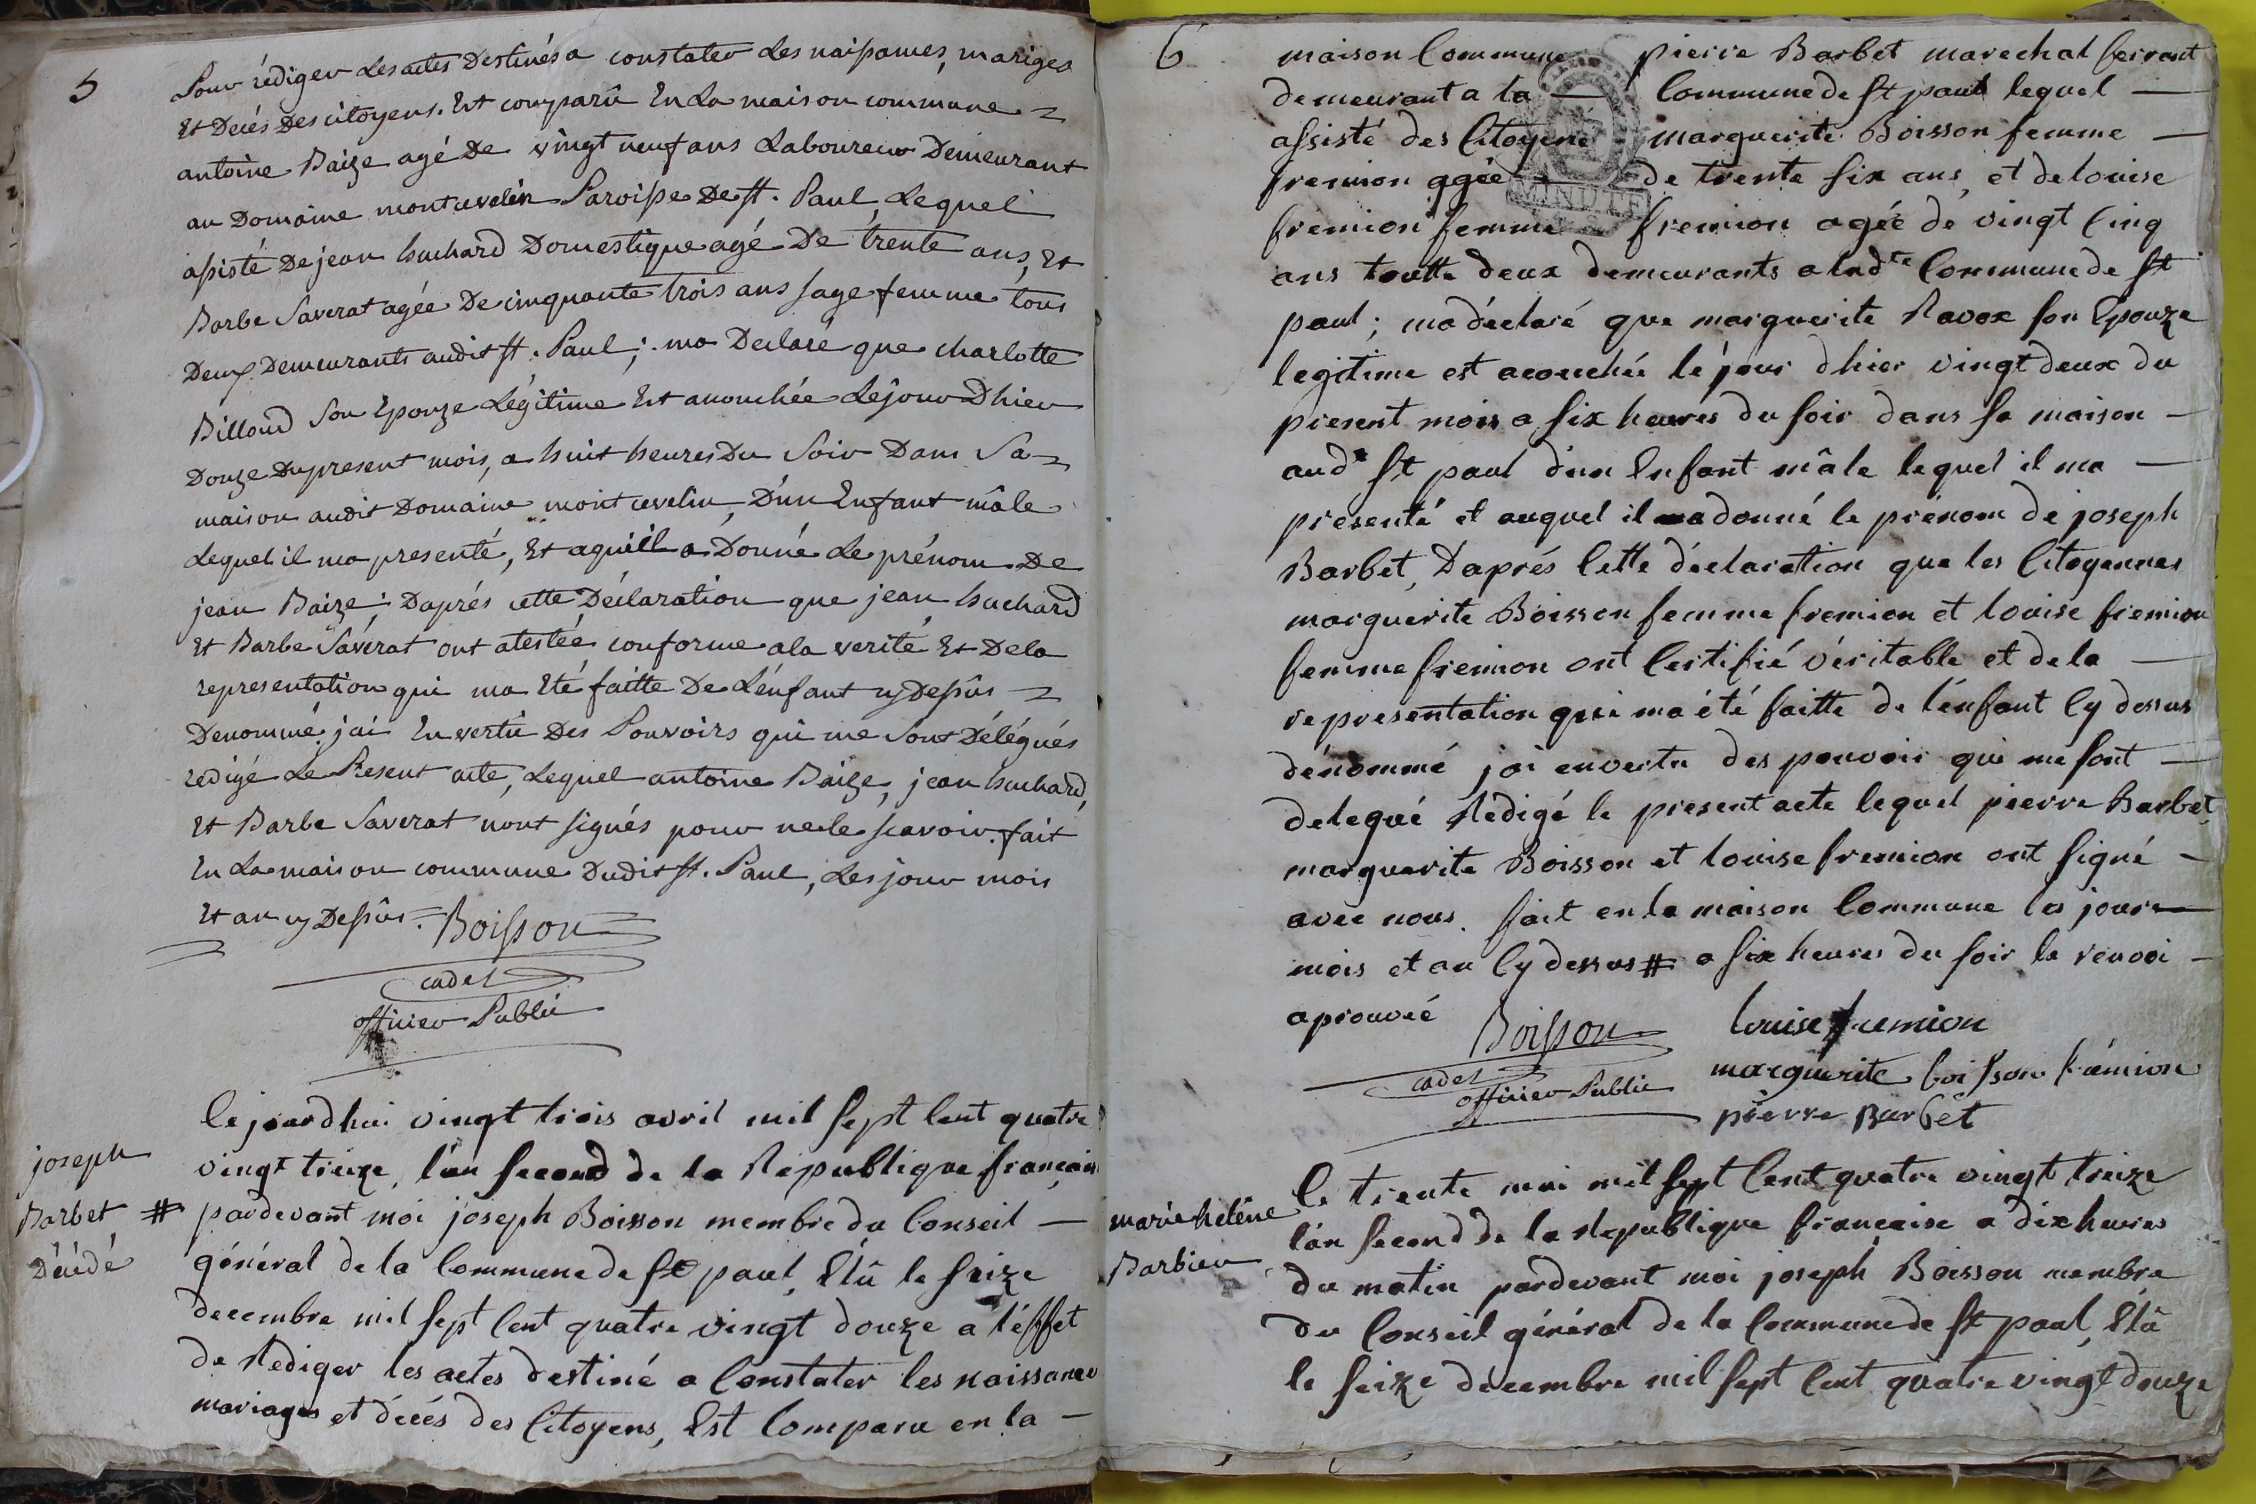 5
Pour rédiger les actes Destinés a constater les naissances, mariges
Et Decés Des citoyens. Est comparû En La maison commune
antoine Baize agé De vingt neuf ans Laboureur Demeurant
au Domaine montcevelin Paroisse De st. Paul, Lequel
assisté De jean huchard Domestique agé De trente ans, Et
Barbe Saverat agée De cinquante trois ans sage femme tous
Deux Demeurants audit st. Paul; ma Declaré que charlotte
Billoud Son Epouze Légitime Est acouchée Le jour D'hier
Douze Du present mois, a huit heures Du Soir Dans Sa
maison audit Domaine montcevelin, D'un Enfant mâle
Lequel il ma presenté, Et aquiil a Donné Le prénom De
jean Baize; Daprés cette Déclaration que jean huchard
Et Barbe Savérat ont atestée conforme a la verité Et De la
representation qui ma Eté faitte De L'énfant cy Dessûs
Denommé, jai En vertû Des Pouvoirs qui me sont Délégués
redigé Le Present acte, Lequel antoine Baize, jean huchard,
Et Barbe Saverat n'ont signés pour ne le scavoir. fait
En La maison commune Dudit st. Paul, Les jour mois
Et an cy Dessûs. Boisson
cadet
officier Public
joseph
Barbet #
Décédé
Ce jourdhui vingt trois avril mil sept Cent quatre
vingt treize, l'an second de la République francaise
pardevant moi joseph Boisson membre du Conseil
général de la Commune de st paul, Elû le seize
decembre mil sept Cent quatre vingt douze a l'éffet
de Rediger les actes destiné a Constater les naissances
mariages et décés des Citoyens, Est Comparu en la
6
maison Commune pierre Barbet marechal ferrant
demeurant a la Commune de st paul lequel
assisté des Citoyene marguerite Boisson femme
fremion agée de trente six ans, et de louise
fremion femme fremion agée de vingt Cinq
ans toutte deux demeurants a lad.te Commune de st
paul; ma déclaré que marguerite Ravox son Epouze
legitime est acouchée le jour d'hier vingt deux du
present mois a six heures du soir dans sa maison
aud.t st paul d'un Enfant mâle lequel il ma
presenté et auquel il a donné le prénom de joseph
Barbet, Daprés Cette déclaration que les Citoyennes
marguerite Boisson femme fremion et louise fremion
femme fremion ont Certifié véritable et de la
representation qui ma été faitte de l'énfant Cy dessus
dénommé j'ai en vertu des pouvoir qui me sont
delegué Rédigé le present acte lequel pierre Barbet,
marguerite Boisson et louise fremion ont signé
avec nous. fait en la maison Commune les jour
mois et an Cy dessus # a six heures du soir le renvoi
aprouvée
Boisson
cadet
officier Public
louise fremion
marguerite boisson frémion
pierre Barbet
marie heléne
Barbier
Ce trente mai mil sept Cent quatre vingt treize
l'an second de la Republique francaise a dix heures
du matin pardevant moi joseph Boisson membre
du Conseil général de la Commune de st paul, Elû
le seize decembre mil sept Cent quatre vingt douze
MINUTE